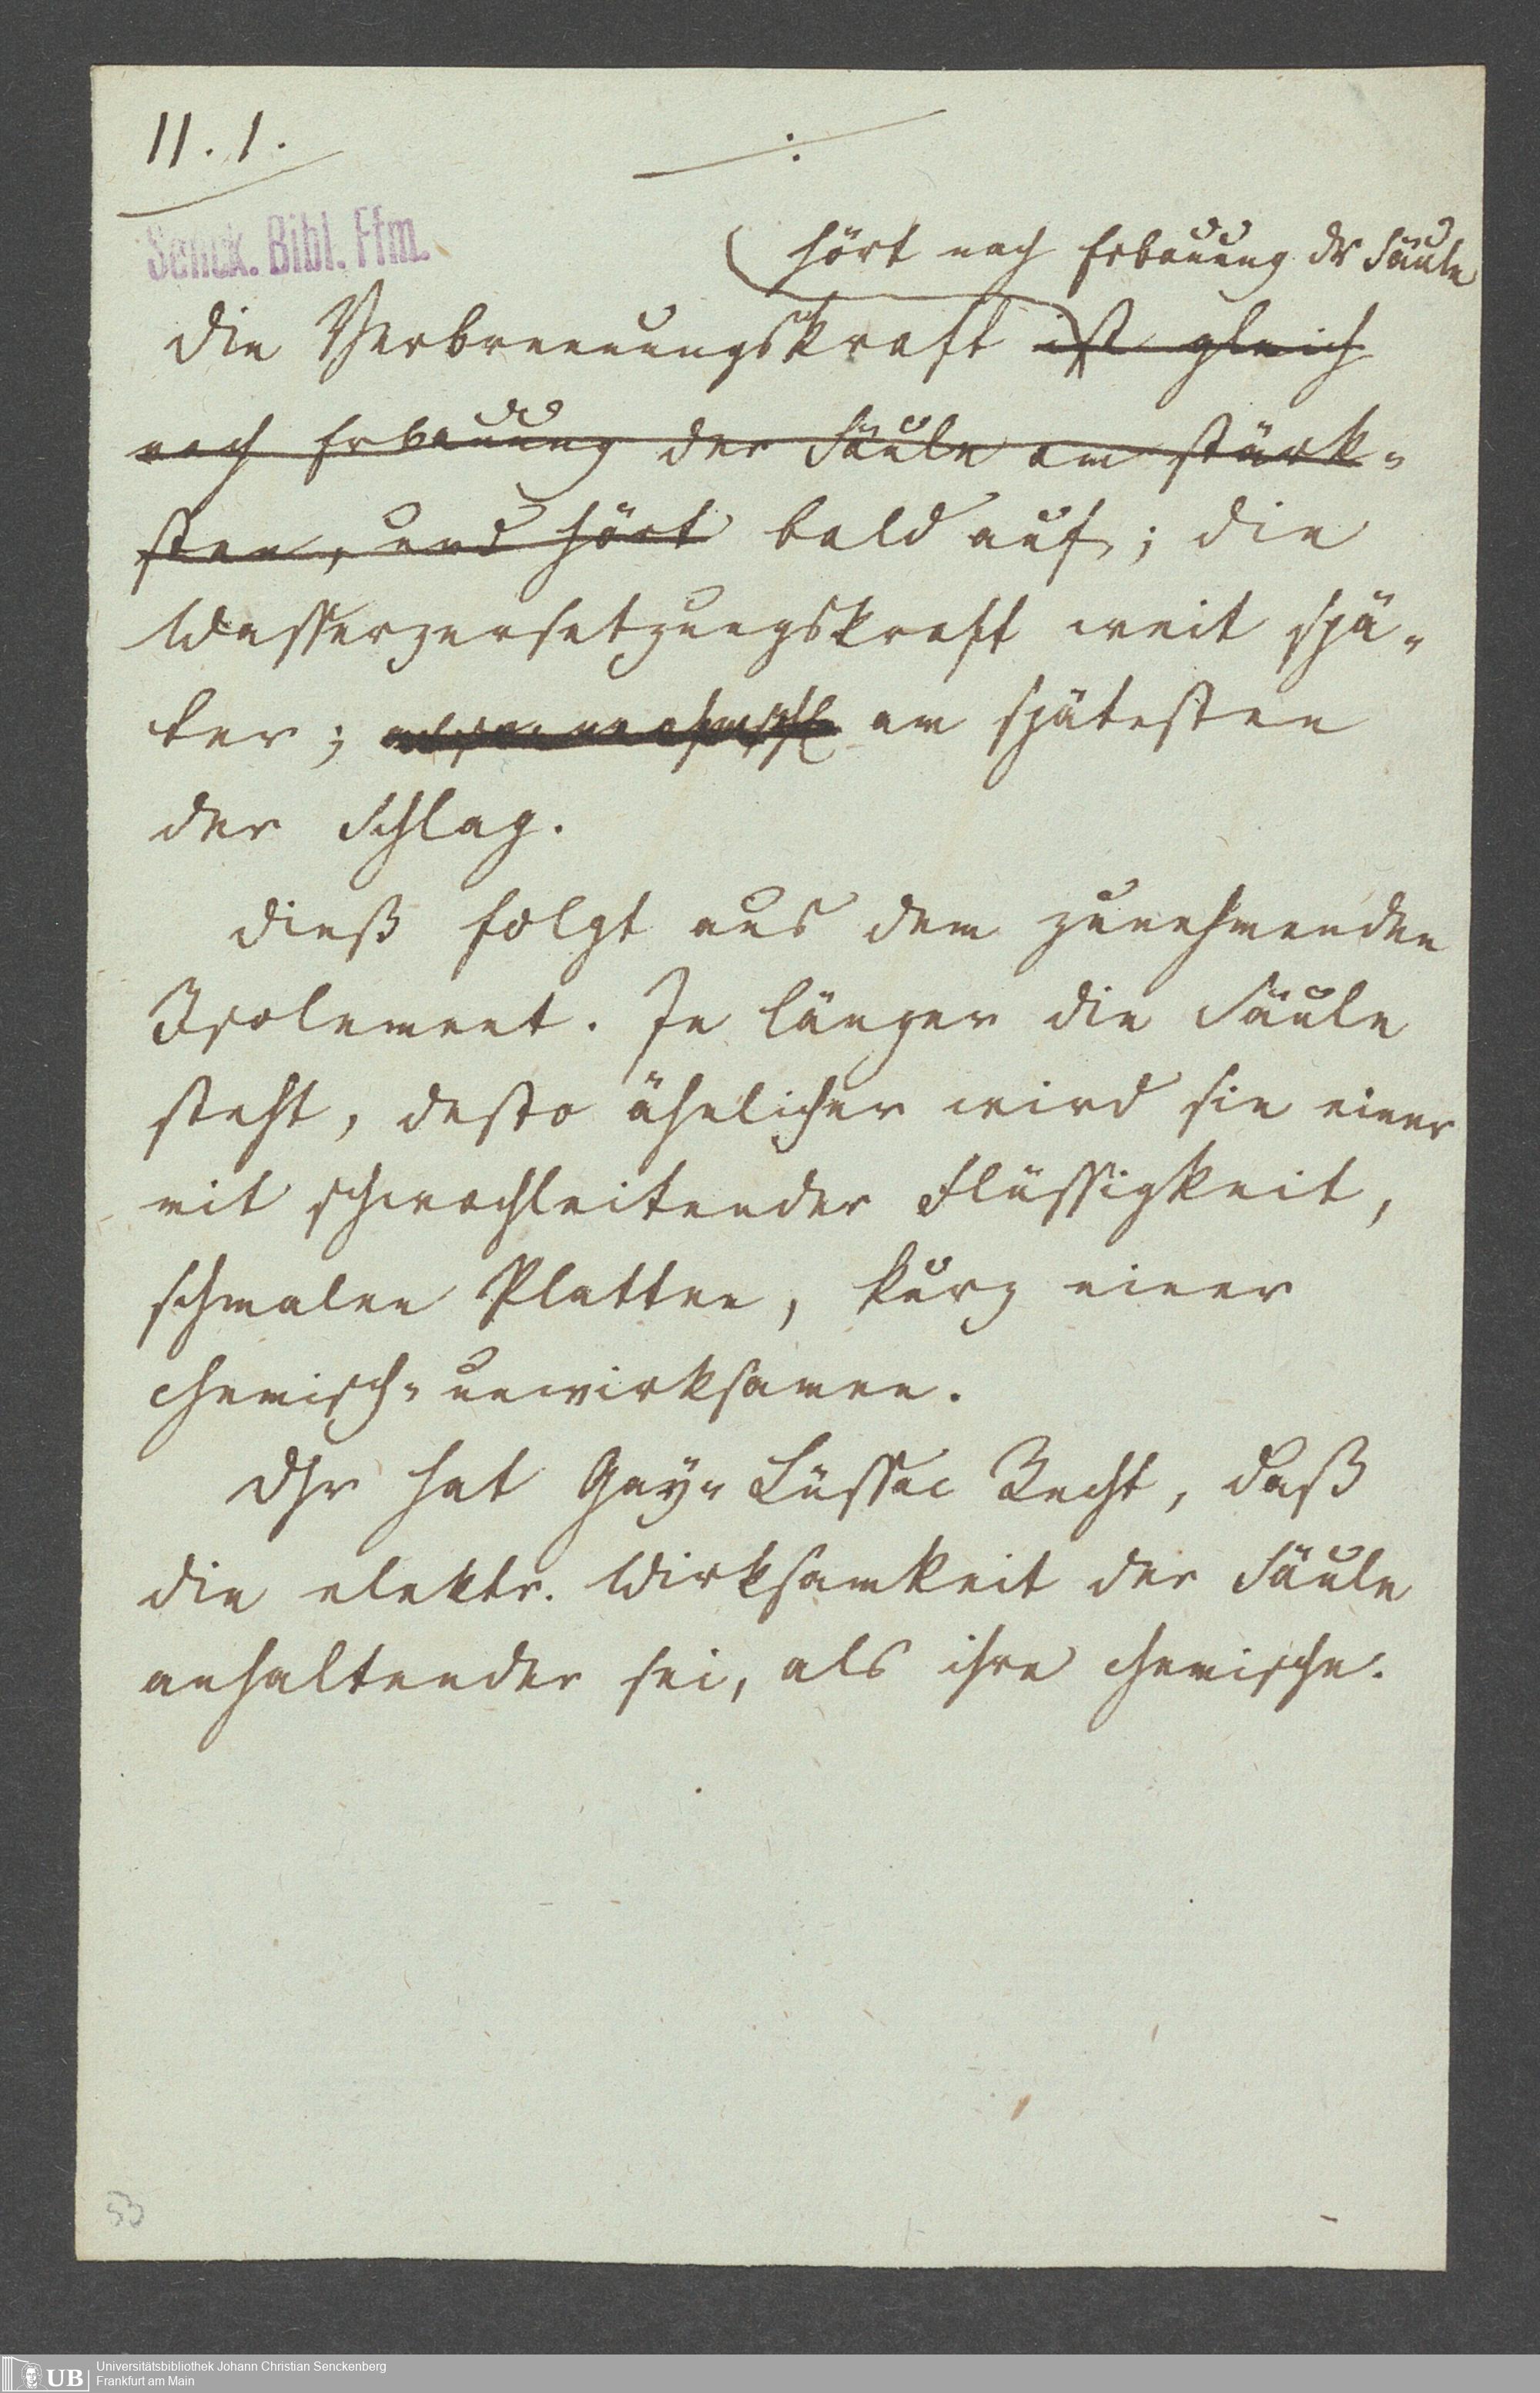 II. 1.
÷
Senck. Bibl. Ffm.
hört nach Erbauung dr Säule
Die Verbrennungskraft ist gleich
nach Erbauung der Säule am stärk-
sten, und hört bald auf; die
Wasserzersetzungskraft weit spä-
ter; am spätesten
der Schlag.
Dieß folgt aus dem zunehmenden
Isolement. Je länger die Säule
steht, desto ähnlicher wird sie einer
mit schwachleitender Flüssigkeit,
schmalen Platten, kurz einer
chemisch-unwirksamen.
Dhr hat Gay-Lüssac Recht, daß
die elektr. Wirksamkeit der Säule
anhaltender sei, als ihre chemische.
53
UB
Universitätsbibliothek Johann Christian Senckenberg
Frankfurt am Main